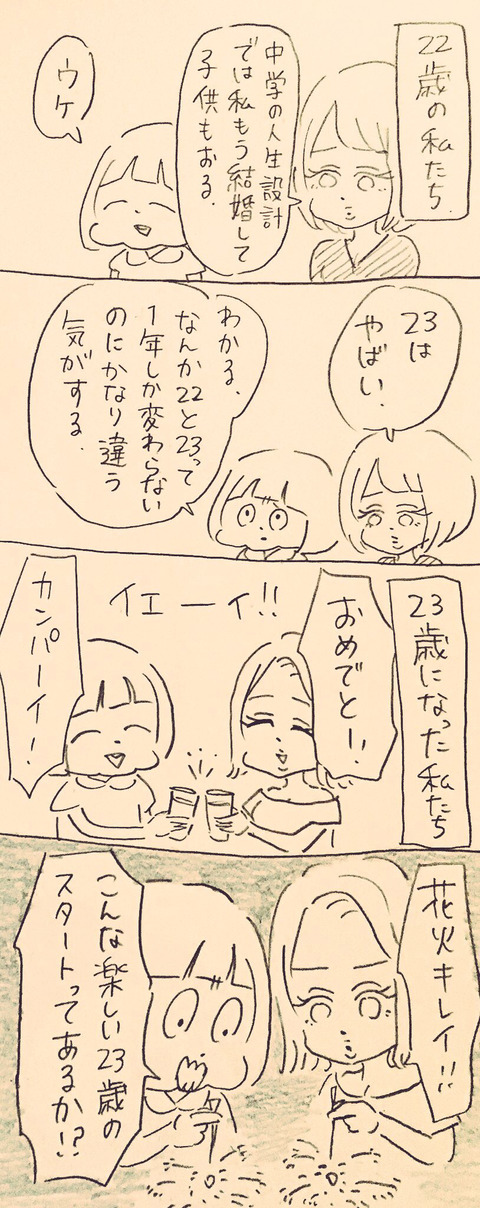 22歳の私たち
中学の人生設計
では私もう結婚して
子供もおる.
ウケ
23は
やばい.
わかる.
なんか22と23って
1年しか変わらない
のにかなり違う
気がする.
23歳になった私たち
おめでとー!!
イエーイ!!
カンパーイ!
花火キレイ!!
こんな楽しい23歳の
スタートってあるか!?